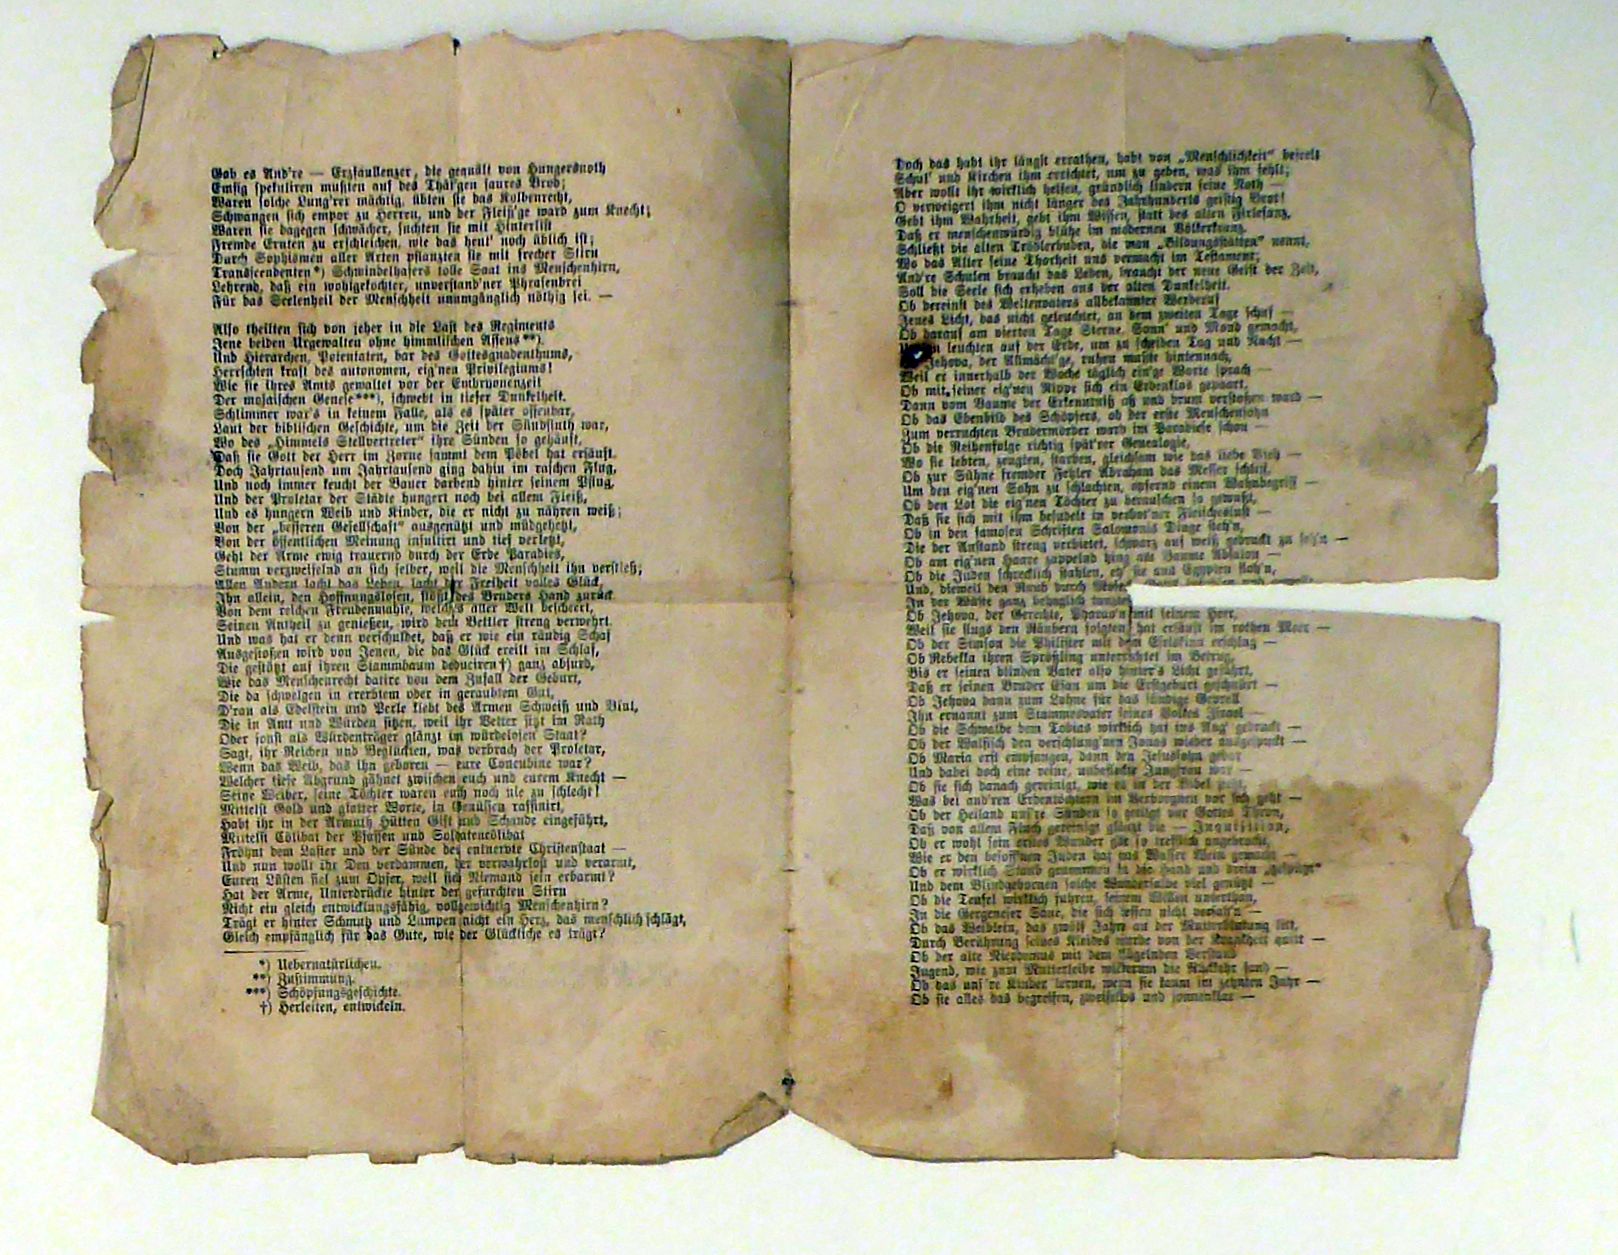 Gab es And're — Erzfaullenzer, die gequält von Hungersnoth
Emsig spekuliren mußten auf des Thät'gen saures Brod;
Waren solche Lung'rer mächtig, übten sie das Kolbenrecht,
Schwangen sich empor zu Herren, und der Fleiß'ge ward zum Knecht;
Waren sie dagegen schwächer, suchten sie mit Hinterlist
Fremde Ernten zu erschleichen, wie das heut' noch üblich ist;
Durch Sophismen aller Arten pflanzten sie mit frecher Stirn
Transcendenten*) Schwindelhafers tolle Saat ins Menschenhirn,
Lehrend, daß ein wohlgekochter, unverstand'ner Phrasenbrei
Für das Seelenheil der Menschheit unumgänglich nöthig sei. —
Also theilten sich von jeher in die Last des Regiments
Jene beiden Urgewalten ohne himmlischen Assens**).
Und Hierarchen, Potentaten, bar des Gottesgnadenthums,
Herrschten kraft des autonomen, eig'nen Privilegiums!
Wie sie ihres Amts gewaltet vor der Embryonenzeit
Der mosaischen Genese***), schwebt in tiefer Dunkelheit.
Schlimmer war's in keinem Falle, als es später offenbar,
Laut der biblischen Geschichte, um die Zeit der Sündfluth war,
Wo des „Himmels Stellvertreter“ ihre Sünden so gehäuft,
Daß sie Gott der Herr im Zorne sammt dem Pöbel hat ersäuft.
Doch Jahrtausend um Jahrtausend ging dahin im raschen Flug,
Und noch immer keucht der Bauer darbend hinter seinem Pflug,
Und der Proletar der Städte hungert noch bei allem Fleiß,
Und es hungern Weib und Kinder, die er nicht zu nähren weiß;
Von der „besseren Gesellschaft“ ausgenützt und müdgehetzt,
Von der öffentlichen Meinung insultirt und tief verletzt,
Geht der Arme ewig trauernd durch der Erde Paradies,
Stumm verzweifelnd an sich selber, weil die Menschheit ihn verstieß;
Allen Andern lacht das Leben, lacht der Freiheit volles Glück,
Ihn allein, den Hoffnungslosen, stößt des Bruders Hand zurück
Von dem reichen Freudenmahle, welches aller Welt bescheert,
Seinen Antheil zu genießen, wird dem Bettler streng verwehrt.
Und was hat er denn verschuldet, daß er wie ein räudig Schaf
Ausgestoßen wird von Jenen, die das Glück ereilt im Schlaf,
Die gestützt auf ihren Stammbaum deduciren†) ganz absurd,
Wie das Menschenrecht datire von dem Zufall der Geburt,
Die da schwelgen in ererbtem oder in geraubtem Gut,
D'ran als Edelstein und Perle klebt des Armen Schweiß und Blut,
Die in Amt und Würden sitzen, weil ihr Vetter sitzt im Rath
Oder sonst als Würdenträger glänzt im würdelosen Staat?
Sagt, ihr Reichen und Beglückten, was verbrach der Proletar,
Wenn das Weib, das ihn geboren — eure Concubine war?
Welcher tiefe Abgrund gähnet zwischen euch und eurem Knecht —
Seine Weiber, seine Töchter waren euch noch nie zu schlecht!
Mittelst Gold und glatter Worte, in Genüssen raffinirt,
Habt ihr in der Armuth Hütten Gift und Schande eingeführt,
Mittelst Cölibat der Pfaffen und Soldatencölibat
Fröhnt dem Laster und der Sünde des entnervte Christenstaat —
Und nun wollt ihr Den verdammen, der verwahrlost und verarmt,
Euren Lüsten fiel zum Opfer, weil sich Niemand sein erbarmt?
Hat der Arme, Unterdrückte hinter der gefurchten Stirn
Nicht ein gleich entwicklungsfähig, vollgewichtig Menschenhirn?
Trägt er hinter Schmutz und Lumpen nicht ein Herz, das menschlich schlägt,
Gleich empfänglich für das Gute, wie der Glückliche es trägt?
*) Uebernatürlichen.
**) Zustimmung.
***) Schöpfungsgeschichte.
†) Herleiten, entwickeln.
Doch das habt ihr längst errathen, habt von „Menschlichkeit“ beseelt
Schul' und Kirchen ihm errichtet, um zu geben, was ihm fehlt;
Aber wollt ihr ihm wirklich helfen, gründlich lindern seine Noth —
O verweigert ihm nicht länger des Jahrhunderts geistig Brot!
Gebt ihm Wahrheit, gebt ihm Wissen, statt des alten Firlefanz,
Daß er menschenwürdig blühe im modernen Völkerkranz,
Schließt die alten Trödlerbuden, die man „Bildungsstätten“ nennt,
Wo das Alter seine Thorheit uns vermacht im Testament;
And're Schulen braucht das Leben, braucht der neue Geist der Zeit,
Soll die Seele sich erheben aus der alten Dunkelheit.
Ob dereinst des Weltenvaters allbekannter Werderuf
Jenes Licht, das nicht geleuchtet, an dem zweiten Tage schuf —
Ob darauf am vierten Tage Sterne, Sonn' und Mond gemacht,
leuchten auf der Erde, um zu scheiden Tag und Nacht —
Jehova, der Allmächt'ge, ruhen mußte hintennach,
Weil er innerhalb der Woche täglich ein'ge Worte sprach —
Ob mit seiner eig'nen Rippe sich ein Erdenklos gepaart,
Dann vom Baume der Erkenntniß aß und drum verstoßen ward —
Ob das Ebenbild des Schöpfers, ob der erste Menschensohn
Zum verruchten Brudermörder ward im Paradiese schon —
Ob die Reihenfolge richtig spät'rer Genealogie,
Wo sie lebten, zeugten, starben, gleichsam wie das liebe Vieh —
Ob zur Sühne fremder Fehler Abraham das Messer schliff,
Um den eig'nen Sohn zu schlachten, opfernd einem Wahnbegriff —
Ob den Lot die eig'nen Töchter zu berauschen so gewußt,
Daß sie sich mit ihm besudelt in verbot'ner Fleischeslust —
Ob in den famosen Schriften Salomonis Dinge steh'n,
Die der Anstand streng verbietet, schwarz auf weiß gedruckt zu seh'n —
Ob am eig'nen Haare zappelnd hing am Baume Absalon —
Ob die Juden schrecklich stahlen, eh' sie aus Egypten floh'n,
Und, dieweil den Raub durch Mose
In der Wüste ganz behaglich
Ob Jehova, der Gerechte, Pharao'n mit seinem Heer,
Weil sie flugs den Räubern folgten, hat ersäuft im rothen Meer —
Ob der Simson die Philister mit dem Eselskinn erschlug —
Ob Rebekka ihren Sprößling unterrichtet im Betrug,
Bis er seinen blinden Vater also hinter's Licht geführt,
Daß er seinen Bruder Esau um die Erstgeburt geschnürt —
Ob Jehova dann zum Lohne für das sündige
Ihn ernannt zum Stammesvater seines Volkes Israel —
Ob die Schwalbe dem Tobias wirklich hat ins Aug' gedruckt —
Ob der Walfisch den verschlung'nen Jonas wieder ausgespuckt —
Ob Maria erst empfangen, dann den Jesussohn gebar
Und dabei doch eine reine, unbefleckte Jungfrau war —
Ob sie sich danach gereinigt, wie es in der Bibel steht,
Was bei and'ren Erdentöchtern im Verborgnen vor sich geht —
Ob der Heiland uns're Sünden so getilgt vor Gottes Thron,
Daß von allem Fluch gereinigt glänzt die — Inquisition,
Ob er wohl sein erstes Wunder gar so trefflich angebracht,
Wie er den besoff'nen Juden hat aus Wasser Wein gemacht —
Ob er wirklich Staub genommen in die Hand und drein
Und dem Blindgebornen solche Wundersalbe viel genützt —
Ob die Teufel wirklich fuhren, seinem Willen unterthan,
In die Gergeneser Säue, die sich dessen nicht versah'n —
Ob das Weiblein, das zwölf Jahre an der Mutterblutung litt,
Durch Berührung seines Kleides wurde von der Krankheit quitt —
Ob der alte Nicodemus mit dem klügelnden Verstand
Jugend, wie zum Mutterleibe wiederum die Rückkehr fand —
Ob das uns're Kinder lernen, wenn sie kaum im zehnten Jahr —
Ob sie alles das begreifen, zweifellos und sonnenklar —